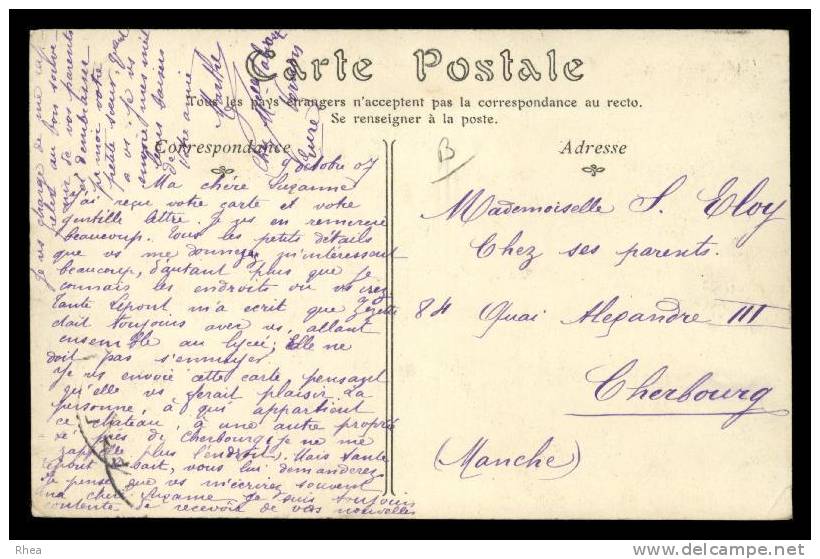 Carte Postale
Tous les pays étrangers n'acceptent pas la correspondance au recto.
Se renseigner à la poste.
Correspondance
Adresse
B
9 octobre 07
Ma chère Suzanne
J'ai reçu votre carte et votre
gentille lettre. Je vs en remercie
beaucoup. Tous les petits détails
que vs me donnez m'intéressent
beaucoup, d'autant plus que je
connais les endroits où vs
tante Lepont m'a écrit que
était toujours avec vs, allant
ensemble au lycée; Elle ne
doit pas s'ennuyer
Je vs envoie cette carte pensant
qu'elle vs ferait plaisir. La
personne, à qui appartient
ce château, a une autre proprié
té près de Cherbourg, je ne me
rappelle plus l'endroit. Mais tante
Lepont sait, vous lui demanderez
Je pense que vs m'écrirez souvent
ma chère Suzanne je suis toujours
contente de recevoir de vos nouvelles
Je vs charge de me rap
peler au bon souve
nir de vos parents
et d'embrasser
pr moi votre
petite sœur,
à vs je vs
envoie mes meil
leurs baisers
Votre amie
Marthe
Chez Mr
Eure
Mademoiselle S. Eloy
Chez ses parents.
84 Quai Alexandre III
Cherbourg
(Manche)
Rhea
http://www.delcampe.net